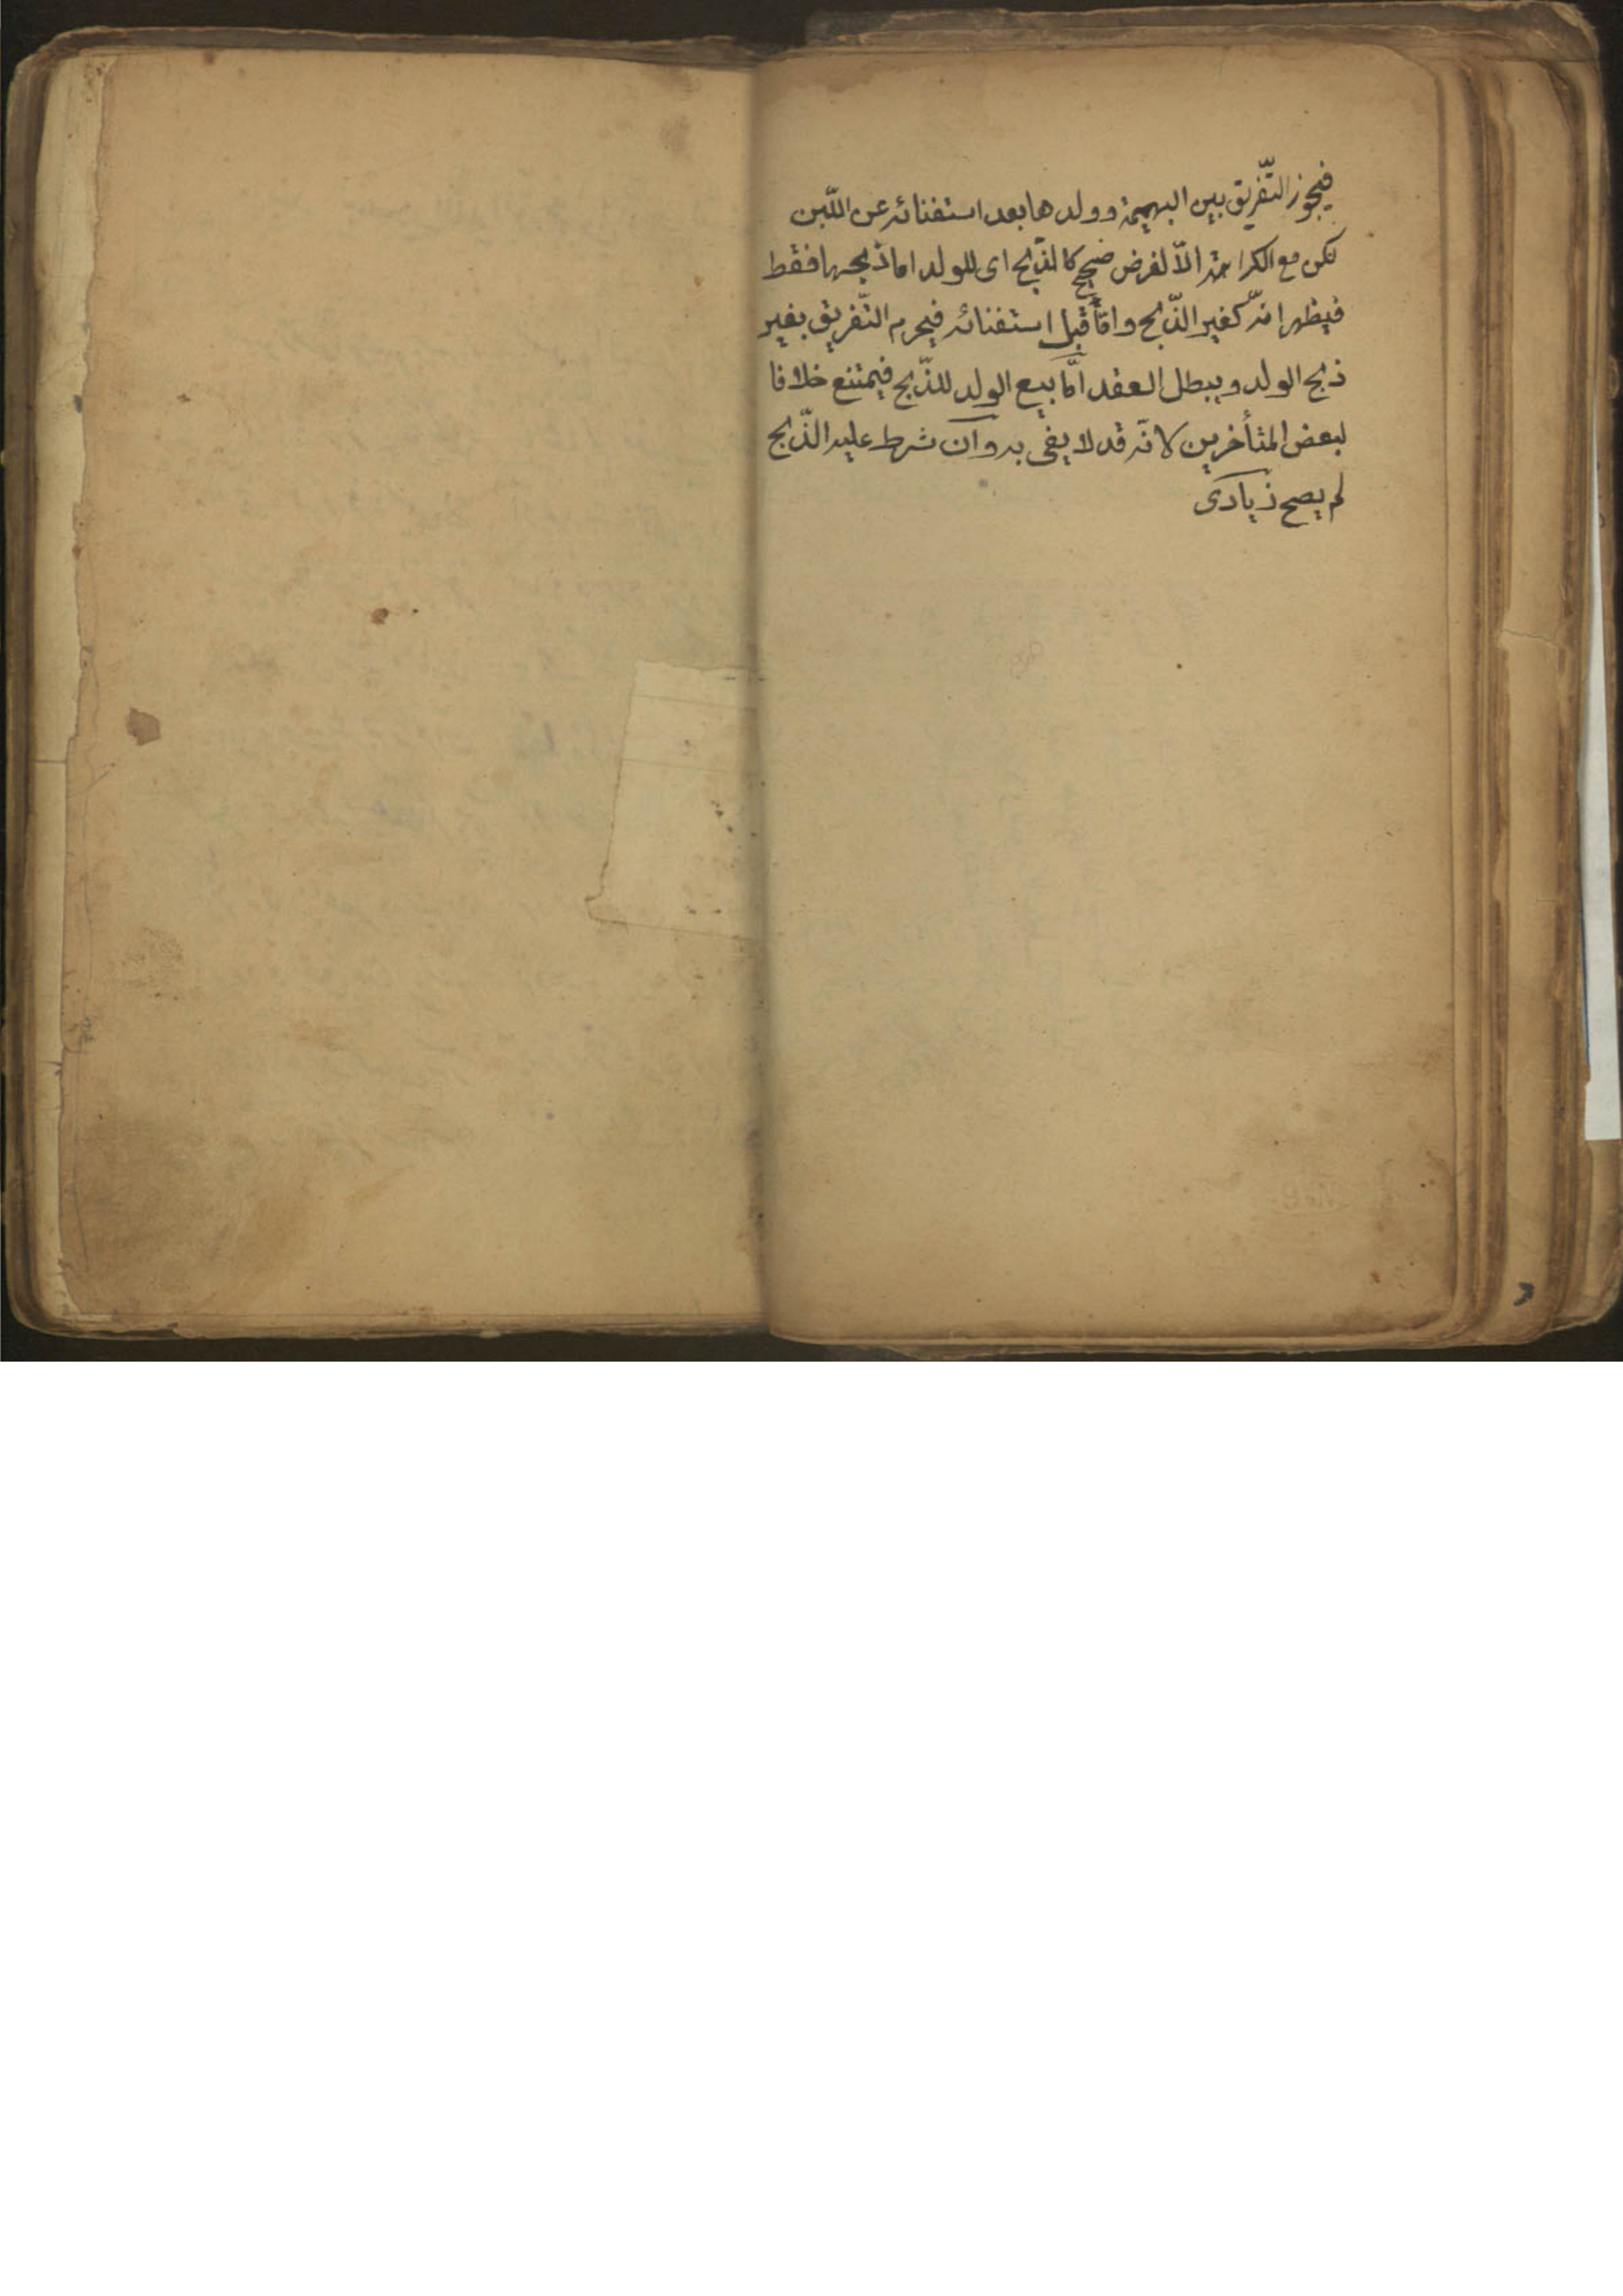 فيجوز التّفريق بين البهيمة وولدها بعد استغنائه عن اللّبن
لكن مع الكراهة الاّ لغرض صحيح كالذّبح اى للولد اما ذبحها فقط
فيظهر انّه كغير الذّبح وامّا قبل استغنائه فيحرم التّفريق بغير
ذبح الولد ويبطل العقد امّا بيع الولد للذّبح فيمتنع خلافا
لبعض المتأخرين لانّه قد لا يفى به وان شرط عليه الذّبح
لم يصح زيادى